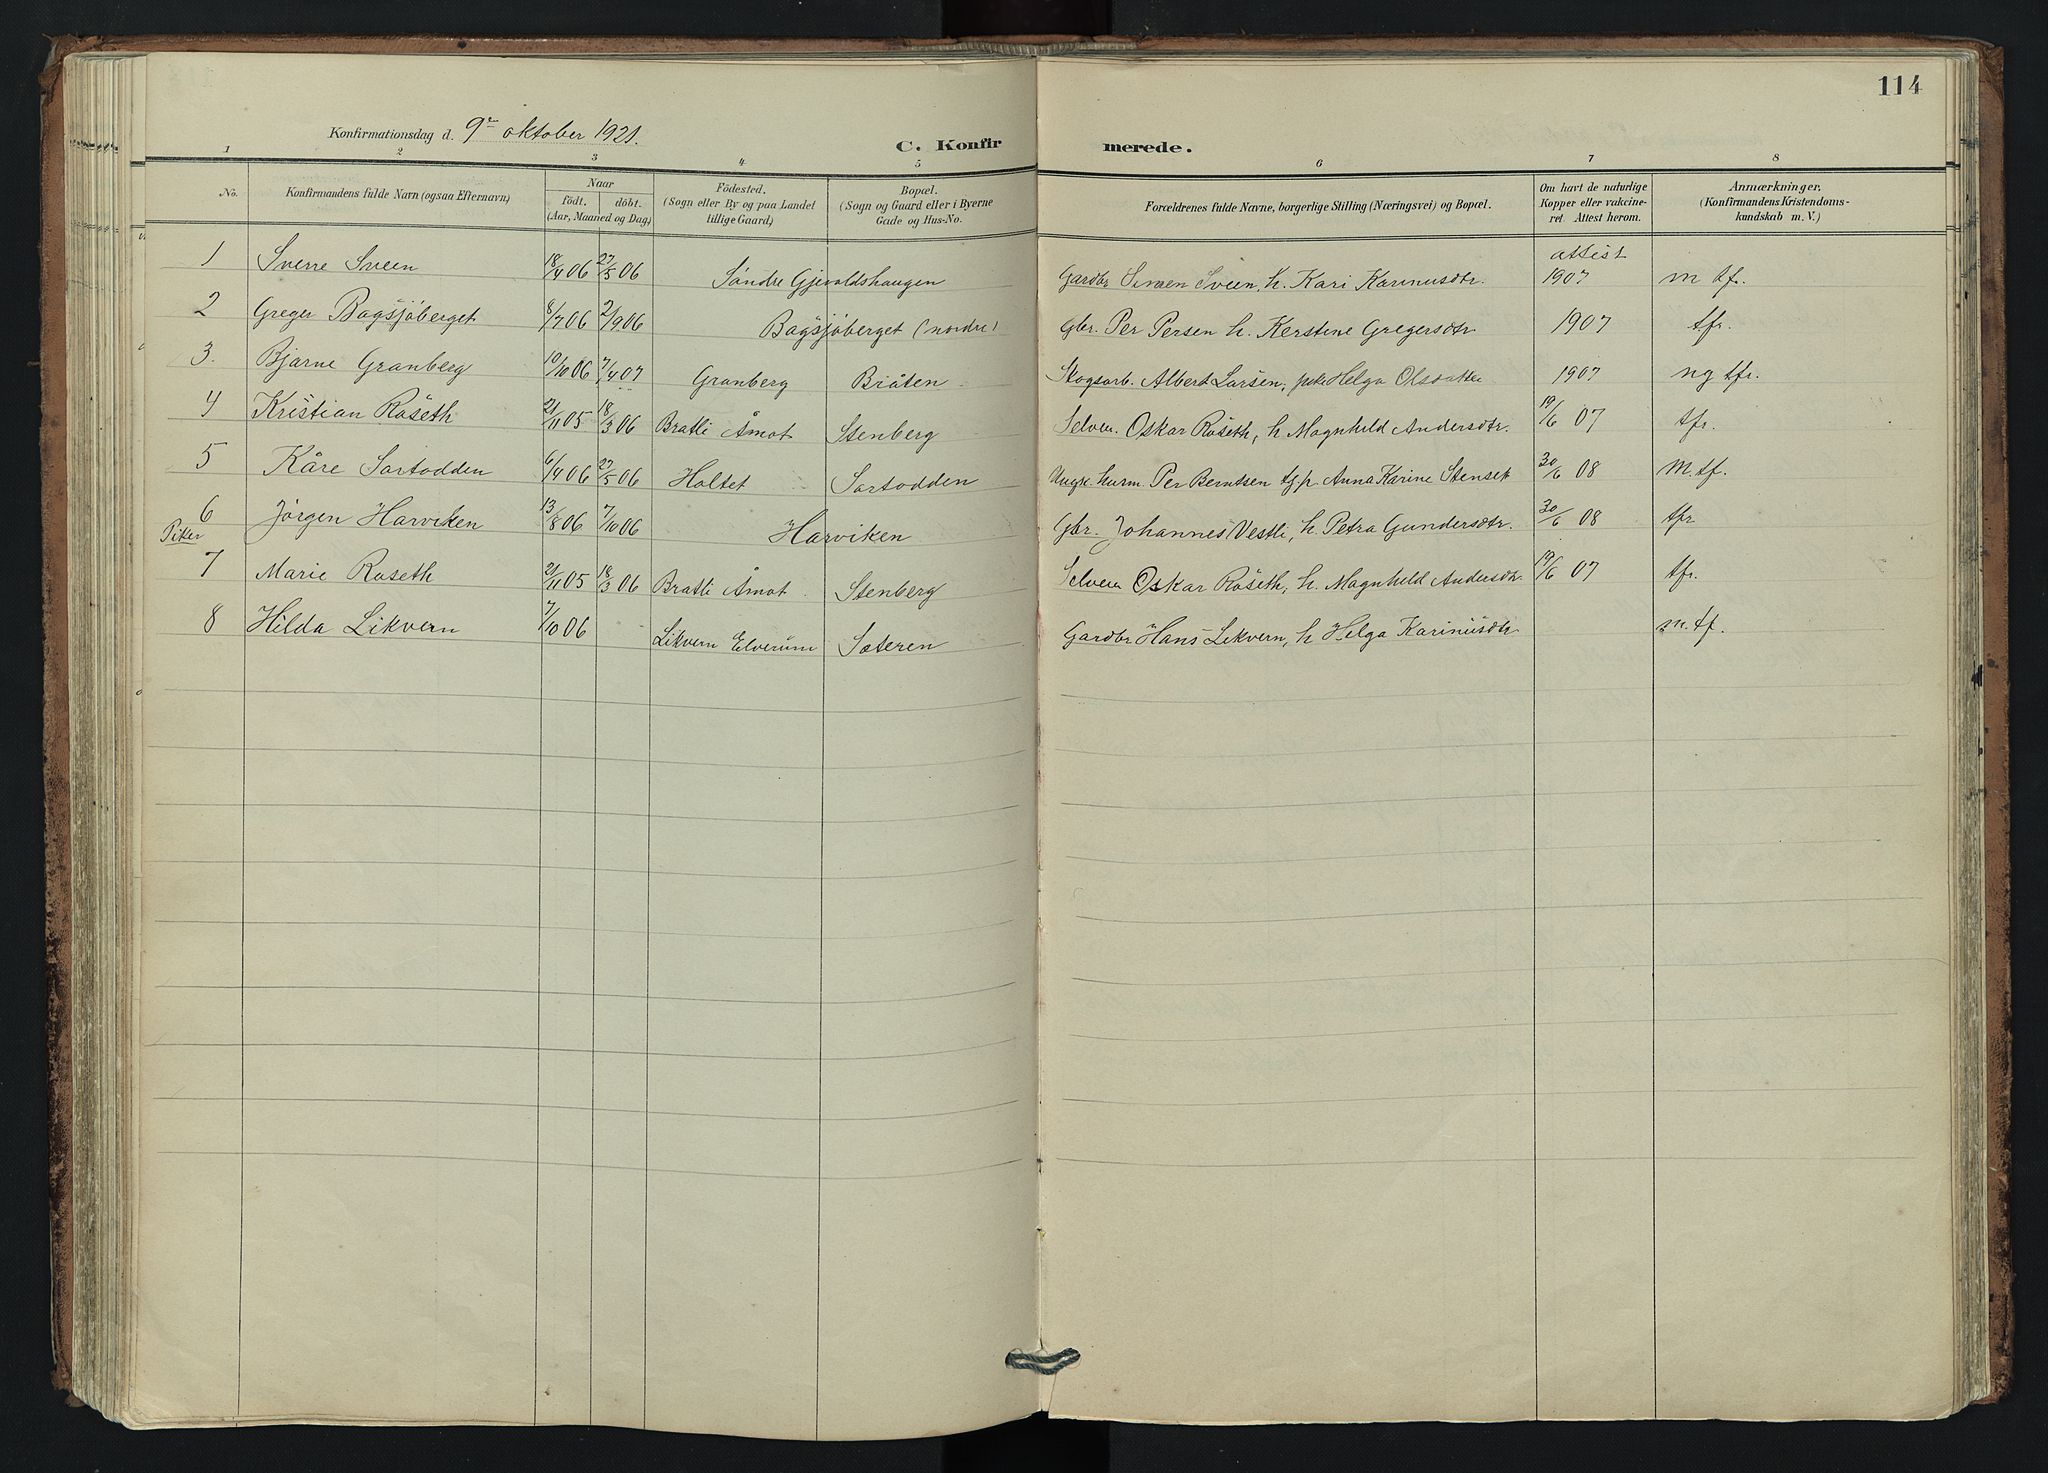 114
Konfirmationsdag d. 9de oktober 1921.
C. Konfirmerede.
1 2 3 4 5 6 7 8
No. Konfirmandens fulde Navn (ogsaa Efternavn). Naar født. døbt. (Aar, Maaned og Dag) Fødested. (Sogn eller By og paa Landet tillige Gaard) Bopæl. (Sogn og Gaard eller i Byerne Gade og Hus-No. Forældrenes fulde Navne, borgerlige Stilling (Næringsvei) og Bopæl. Om havt de naturlige Kopper eller vakcineret. Attest herom. Anmærkninger. (Konfirmandens Kristendomskundskab m. V.)
attest
1 Sverre Sveen 18/4 06 27/5 06 Søndre Gjevaldshaugen Gardbr Simen Sveen, h. Kari Karinusdtr. 1907 m tfr.
2 Greger Bagsjøberget 8/7 06 2/9 06 Bagsjøberget (nordre) Gbr. Per Persen h. Kerstine Gregersdtr 1907 tfr.
3. Bjarne Granberg 19/10 06 7/4 07 Granberg Bråten Skogsarb. Albert Larsen, pike Helga Olsdatter 1907 ng tfr.
4 Kristian Røseth 21/11 05 18/3 06 Bratli Åmot Stenberg Selveier Oskar Røseth, h. Magnhild Andersdtr. 19/6 07 tfr.
5 Kåre Sortodden 6/4 06 27/5 06 Holtet Sortodden Ungk. husm. Per Berntsen tj.p. Anna Karine Stenset 30/6 08 M. tf.
6 Jørgen Harviken 13/8 06 7/10 06 Harviken Gbr. Johannes Vestli, h. Petra Gundersdtr. 30/6 08 tfr
Piker
7 Marie Røseth 21/11 05 18/3 06 Bratli Åmot Stenberg Selveier Oskar Røseth, h. Magnhild Andersdtr. 19/6 07 tfr.
8 Hilda Likvern 7/10 06 Likvern Elverum Sæteren Gardbr Hans Likvern, h Helga Karinusdtr m. tf.